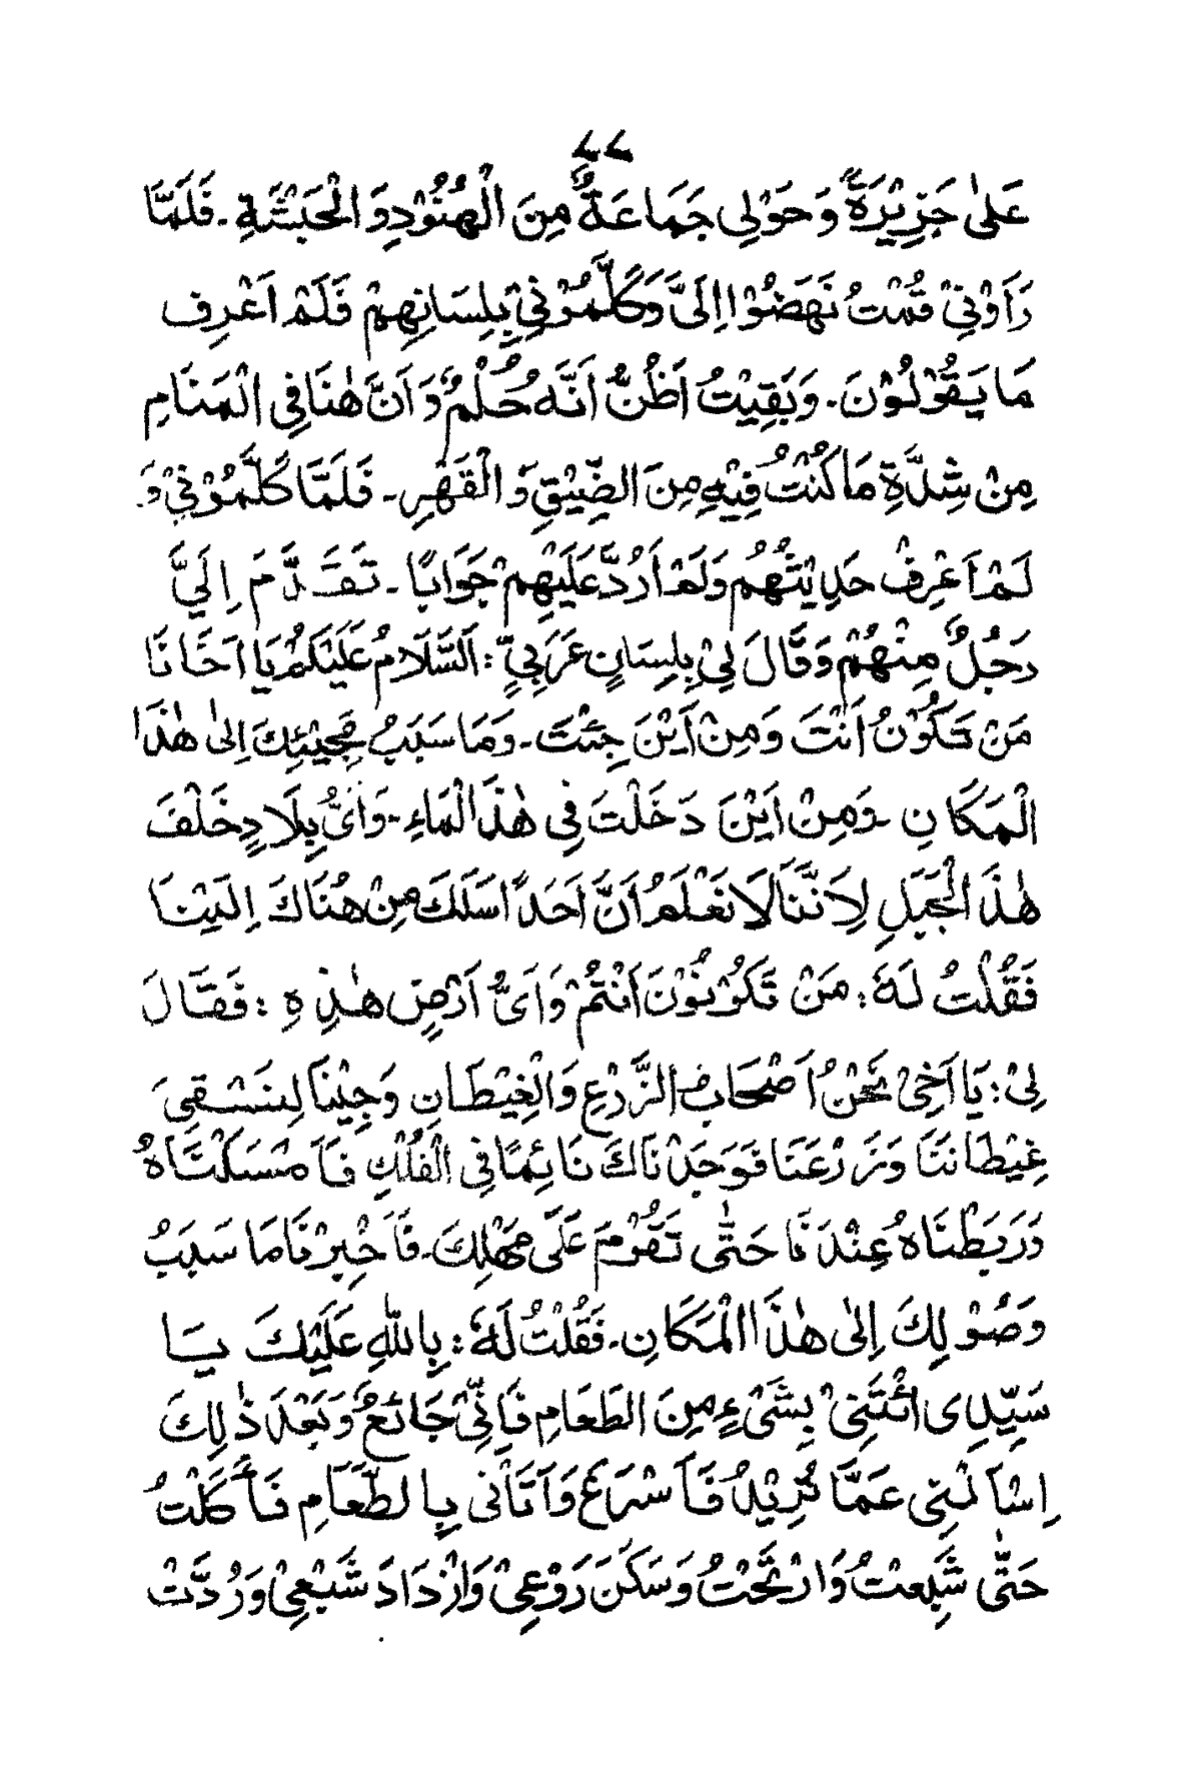 ٤٤
عَلىٰ جَزِيْرَةٍ وَحَوْلِي جَمَاعَةٌ مِنَ الْهُنُوْدِ وَ الْحَبْشَةِ ۔ فَلَمَّا
رَاَوْنِيْ قُمْتُ نَهَضُوْا اِلَىَّ وَكَلَّمُوْنِيْ بِلِسَانِهِمْ فَلَمْ اَعْرِف
مَا يَقُوْلُوْنَ ۔ وَبَقِيْتُ اَظُنُّ اَنَّهُ حُلْمٌ وَ اَنَّ هٰنَا فِي الْمَنَامِ
مِنْ شِدَّةِ مَا كُنْتُ فِيْهِ مِنَ الضِّيْقِ وَ الْقَهْرِ ۔ فَلَمَّا كَلَّمُوْنِيْ وَ
لَمْ اَعْرِفْ حَدِيْثَهُم وَلَمْ اَرُدَّ عَلَيْهِمْ جَوَابًا ۔ تَقَدَّمَ اِلَيَّ
رَجُلٌ مِنْهُمْ وَقَالَ لِيْ بِلِسَانٍ عَرَبِيٍّ : اَلسَّلَامُ عَلَيْكُمْ يَا اَخَانَا
مَنْ تَكُوْنُ اَنْتَ وَمِنْ اَيْنَ جِئْتَ ۔ وَمَا سَبَبُ مَجِيْئِكَ اِلىٰ هٰذَا
الْمَكَانِ ۔ وَمِنْ اَيْنَ دَخَلْتَ فِي هٰذَا الْمَاءِ ۔ وَاَىُّ بِلَادٍ خَلْفَ
هٰذَ الْجَبَلِ لِاَنَّنَا لَا نَعْلَمُ اَنَّ اَحَدًا سَلَكَ مِنْ هُنَاكَ اِلَيْنَا
فَقُلْتُ لَهُ : مَنْ تَكُوْنُوْنَ اَنْتُمْ وَ اَىُّ اَرْضٍ هٰذِهِ : فَقَالَ
لِيْ : يَا اَخِيْ نَحْنُ اَصْحَابُ الزَّرْعِ وَالْغِيْطَانِ وَجِيْنَا لِنَسْقِيَ
غِيْطَانَنَا وَزَرْعَنَا فَوَجَدْنَاكَ نَائِمًا فِي الْفُلْكِ فَاَمْسَكْنَاهُ
وَرَبَطْنَاهُ عِنْدَنَا حَتّٰى تَقُوْمَ عَلَى مَهْلِكَ ۔ فَاَخْبِرْنَا مَا سَبَبُ
وَصُوْلِكَ اِلىٰ هٰذَا الْمَكَانِ ۔ فَقُلْتُ لَهُ : بِاللّٰهِ عَلَيْكَ يَا
سَيِّدِى ائْتَنِيْ بِشَىْءٍ مِنَ الطَعَامِ فَاِنِّيْ جَائعٌ وَبَعْدَ ذٰلِكَ
اِسْاَلْنِي عَمَّا تُرِيْدُ فَاَسْرَعَ وَاَتَانْي بِالطَّعَامِ فَاَكَلْتُ
حَتّٰى شَبِعتُ وَارْتَحْتُ وَسَكَنَ رَوْعِيْ وَازْدَادَ شَبْعِيْ وَرُدَّتْ